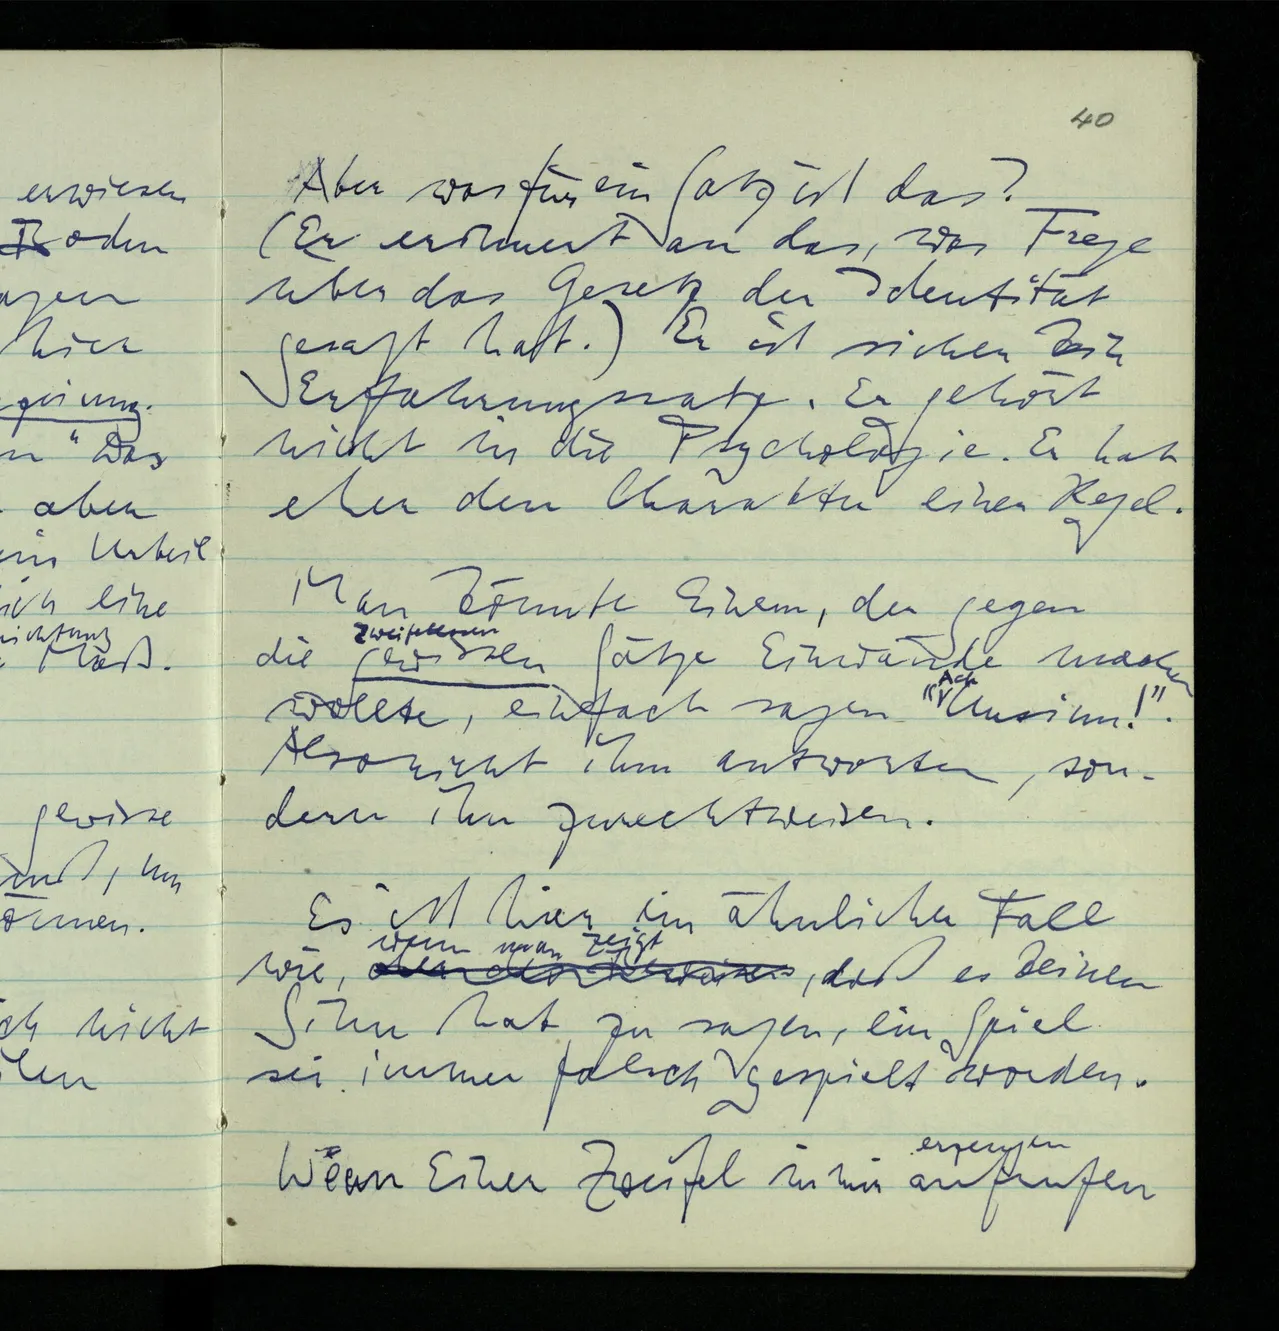 erwiesen
oder
hier
"Das
aber
Urteil
eine
Maß.
gewisse
um
nicht
40
Aber was für ein Satz ist das?
(Er erinnert an das, was Frege
über das Gesetz der Identität
gesagt hat.) Er ist sicher kein
Erfahrungssatz. Er gehört
nicht in die Psychologie. Er hat
eher den Charakter einer Regel.
Man könnte Einem, der gegen
zweifellosen
die gewissen Sätze Einwände machen
Ach
wollte, einfach sagen "Unsinn!".
Also nicht ihm antworten, son-
dern ihn zurechtweisen.
Es ist hier ein ähnlicher Fall
wenn man zeigt
wie, , daß es keinen
Sinn hat zu sagen, ein Spiel
sei immer falsch gespielt worden.
erzeugen
Wenn Einer Zweifel in mir aufrufen